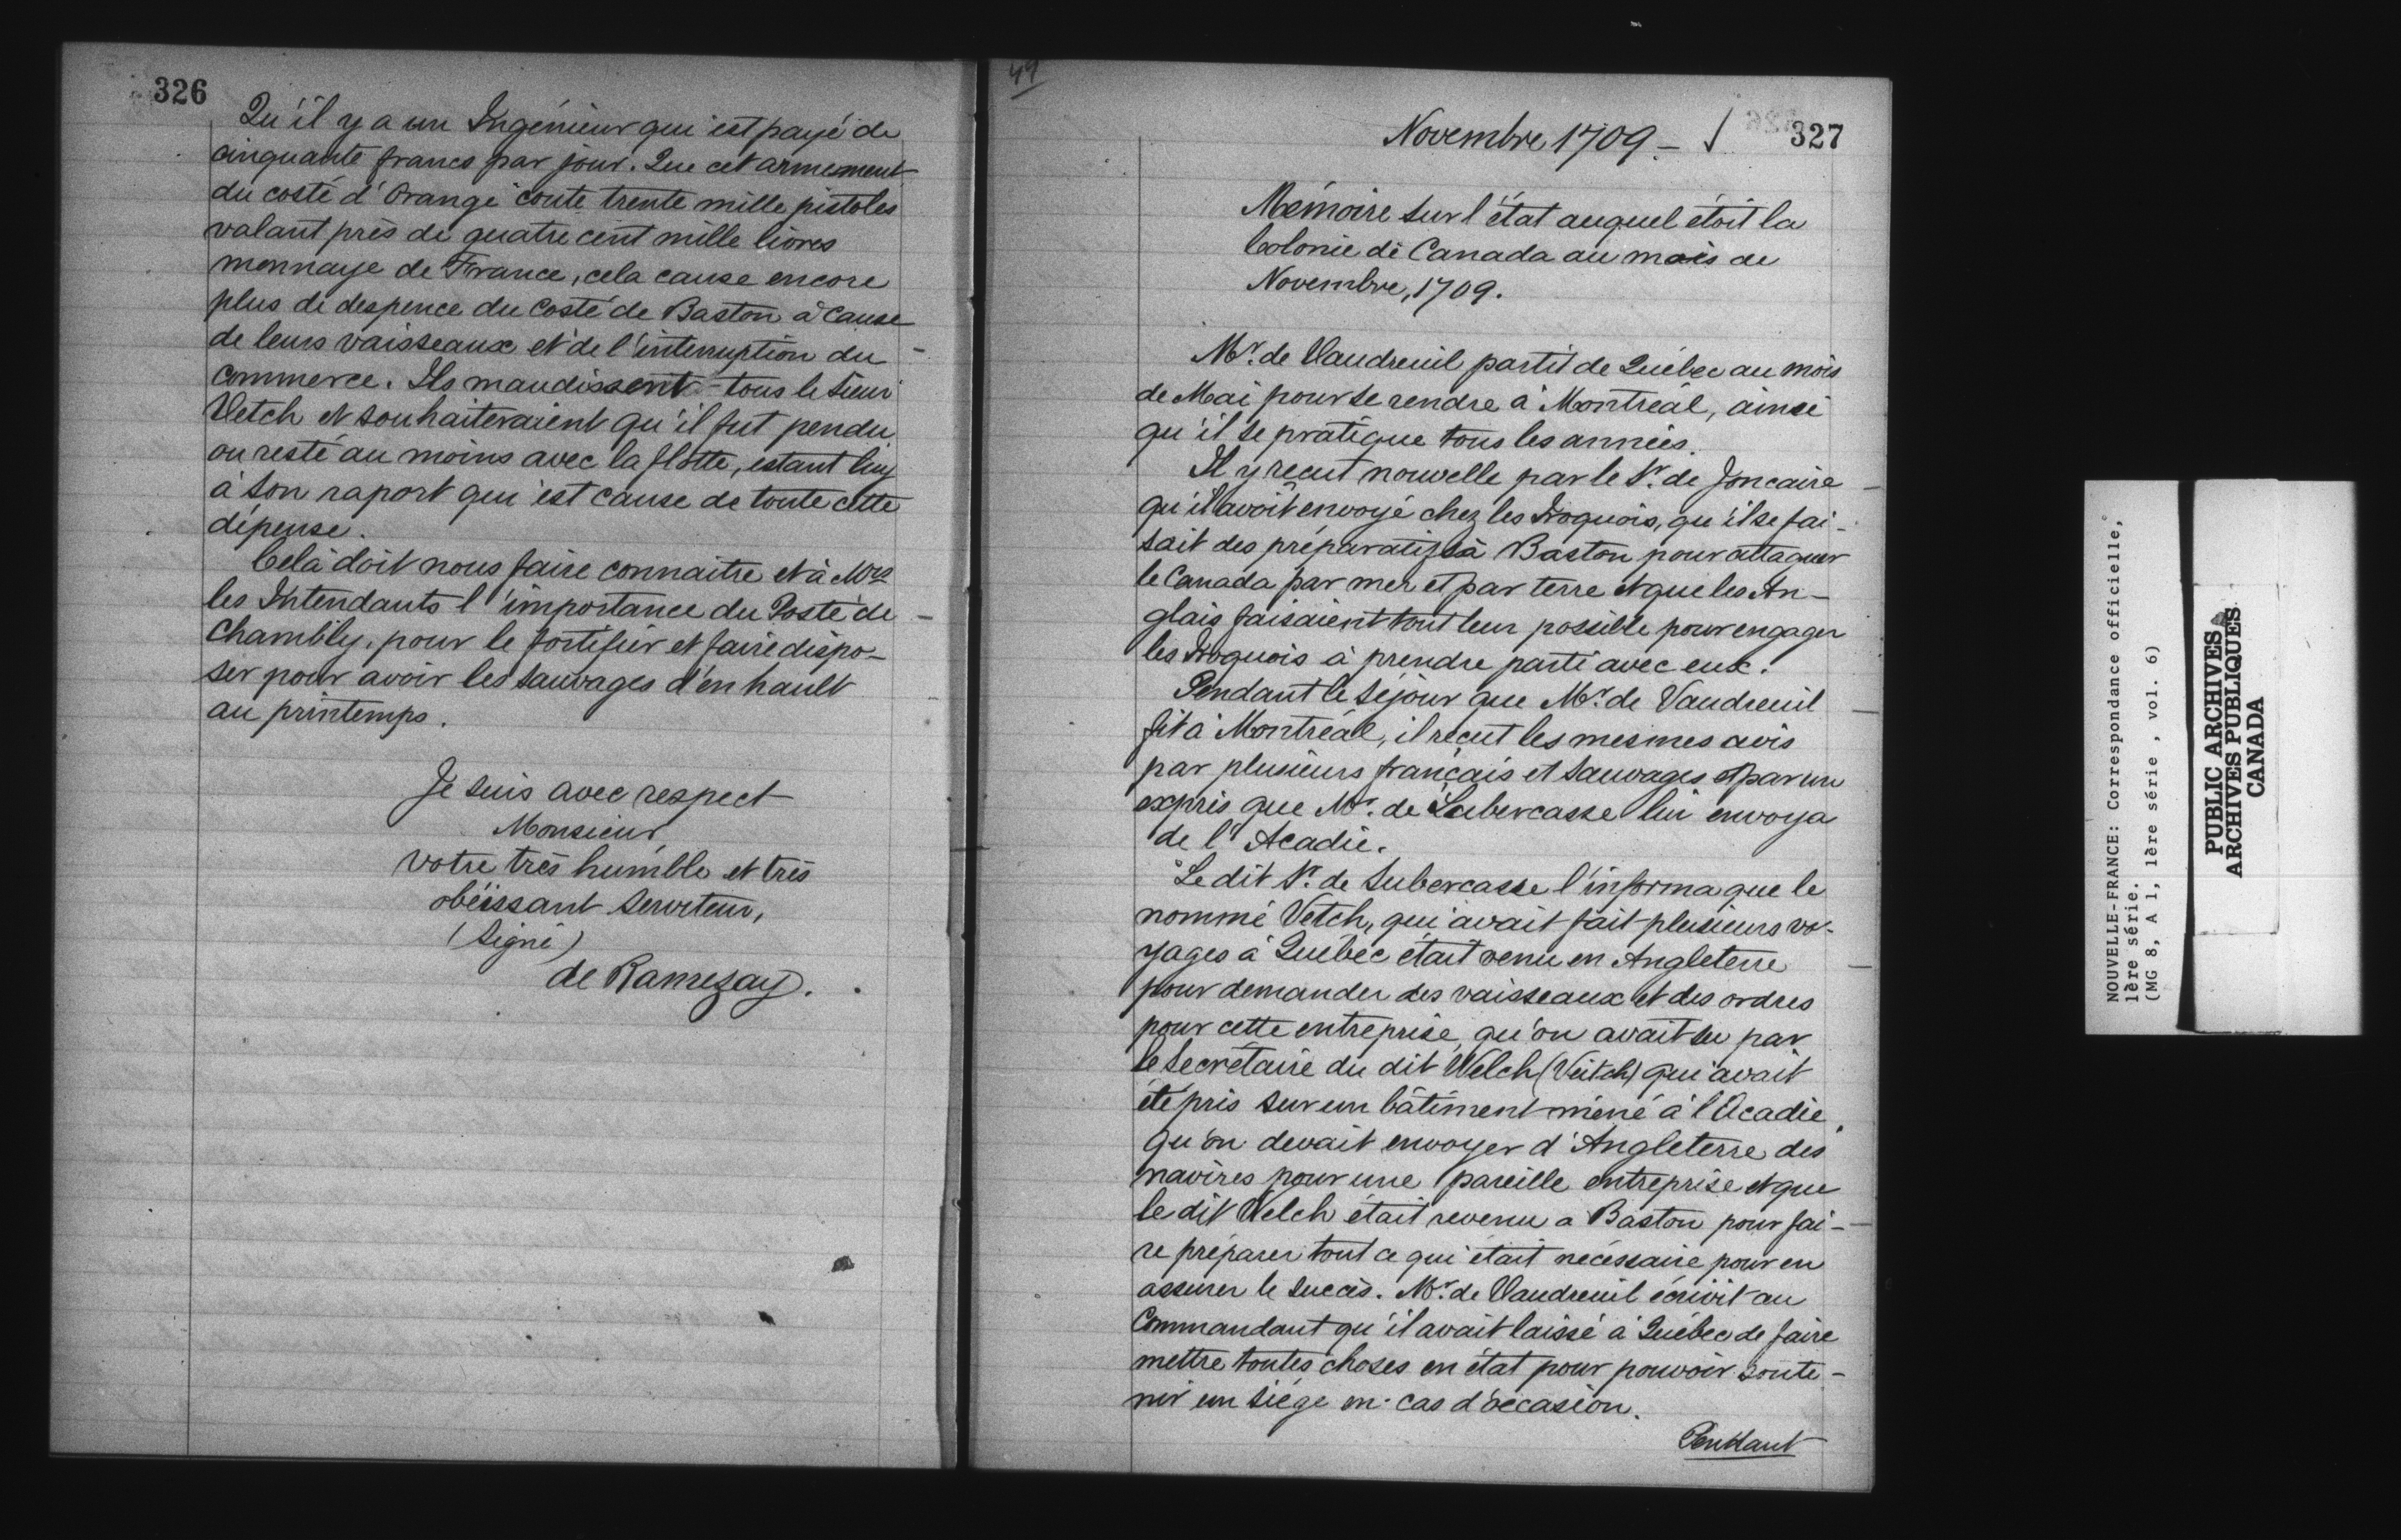 326
Qu'il y a un Ingénieur qui est payé de
cinquante francs par jour. Que cet armement
du costé d'Orange coute trente mille pistoles
valant près de quatre cent mille livres
monnaye de France, cela cause encore
plus de despence du costé de Baston à cause
de leurs vaisseaux et de l'interruption du
commerce. Ils maudissent tous le sieur
Vetch et souhaiteraient qu'il fut pendu
ou resté au moins avec la flotte, estant luy
à son raport qui est cause de toute cette
dépense.
Celà doit nous faire connaitre et à Mrs
les Intendants l'importance du Poste de
Chambly, pour le fortifier et faire dispo-
ser pour avoir les sauvages d'en hault
au printemps.
Je suis avec respect
Monsieur
votre très humble et très
obéissant serviteur,
(Signé)
de Ramezay.
49
Novembre 1709 -
327
Mémoire sur l'état auquel étoit la
Colonie de Canada au mois de
Novembre, 1709.
Mr. de Vaudreuil partit de Québec au mois
de Mai pour se rendre à Montréal, ainsi
qu'il se pratique tous les années.
Il y recut nouvelle par le Sr. de Joncaire
qu'il avoit envoyé chez les Iroquois, qu'il se fai-
sait des préparatifs à Baston pour attaquer
le Canada par mer et par terre et que les An-
glais faisaient tout leur possible pour engager
les Iroquois à prendre parti avec eux.
Pendant le séjour que Mr. de Vaudreuil
fit à Montréal, il recut les mesmes avis
par plusieurs français et sauvages et par un
exprès que Mr. de Subercasse lui envoya
de l'Acadie.
Le dit Sr. de Subercasse l'informa que le
nommé Vetch, qui avait fait plusieurs vo-
yages à Québec était venu en Angleterre
pour demander des vaisseaux et des ordres
pour cette entreprise, qu'on avait su par
le secrétaire du dit Welch (Veitch) qui avait
été pris sur un bâtiment mené à l'Acadie,
qu'on devait envoyer d'Angleterre des
navires pour une pareille entreprise et que
le dit Welch était revenu a Baston pour fai-
re préparer tout ce qui était nécessaire pour en
assurer le succès. Mr. de Vaudreuil écrivit au
Commandant qu'il avait laissé à Québec de faire
mettre toutes choses en état pour pouvoir soute-
nir un siége en cas d'occasion.
Pendant
NOUVELLE-FRANCE: Correspondance officielle,
1ère série.
(MG 8, A 1, 1ère série , vol. 6)
PUBLIC ARCHIVES
ARCHIVES PUBLIQUES
CANADA